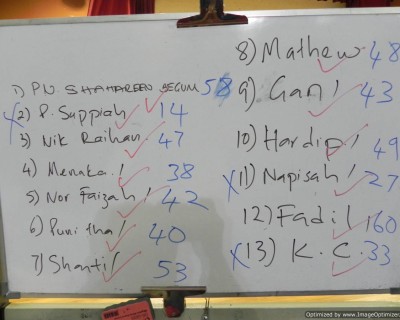 1) PN. SHAHAREEN BEGUM 58
2) P. Suppiah 14
3) Nik Raihan 47
4) Menaka 38
5) Nor Faizah 42
6) Punitha 40
7) Shanti 53
8) Mathew 48
9) Gan 43
10) Hardip 49
11) Napisah 27
12) Fadil 160
13) K.C. 33
Optimized by www.ImageOptimizer.net